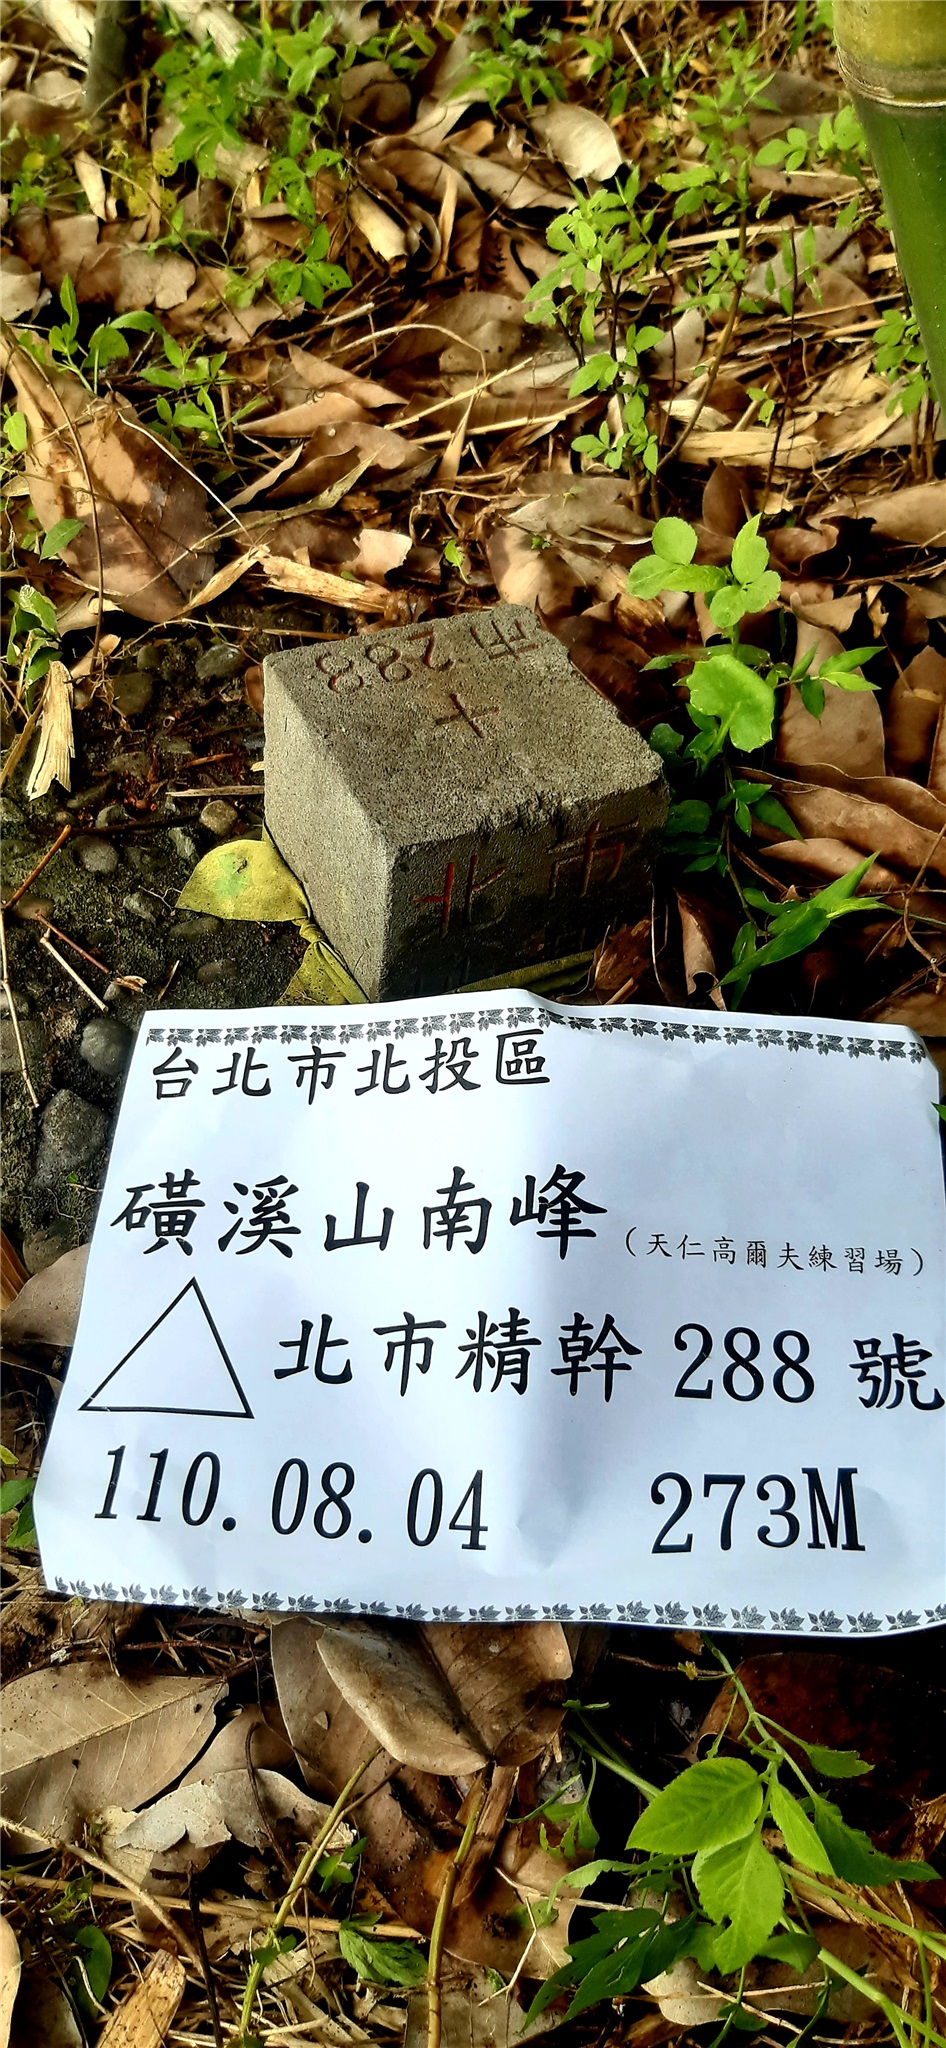 市288
北市
台北市北投區
磺溪山南峰(天仁高爾夫練習場)
北市精幹288號
110.08.04 273M